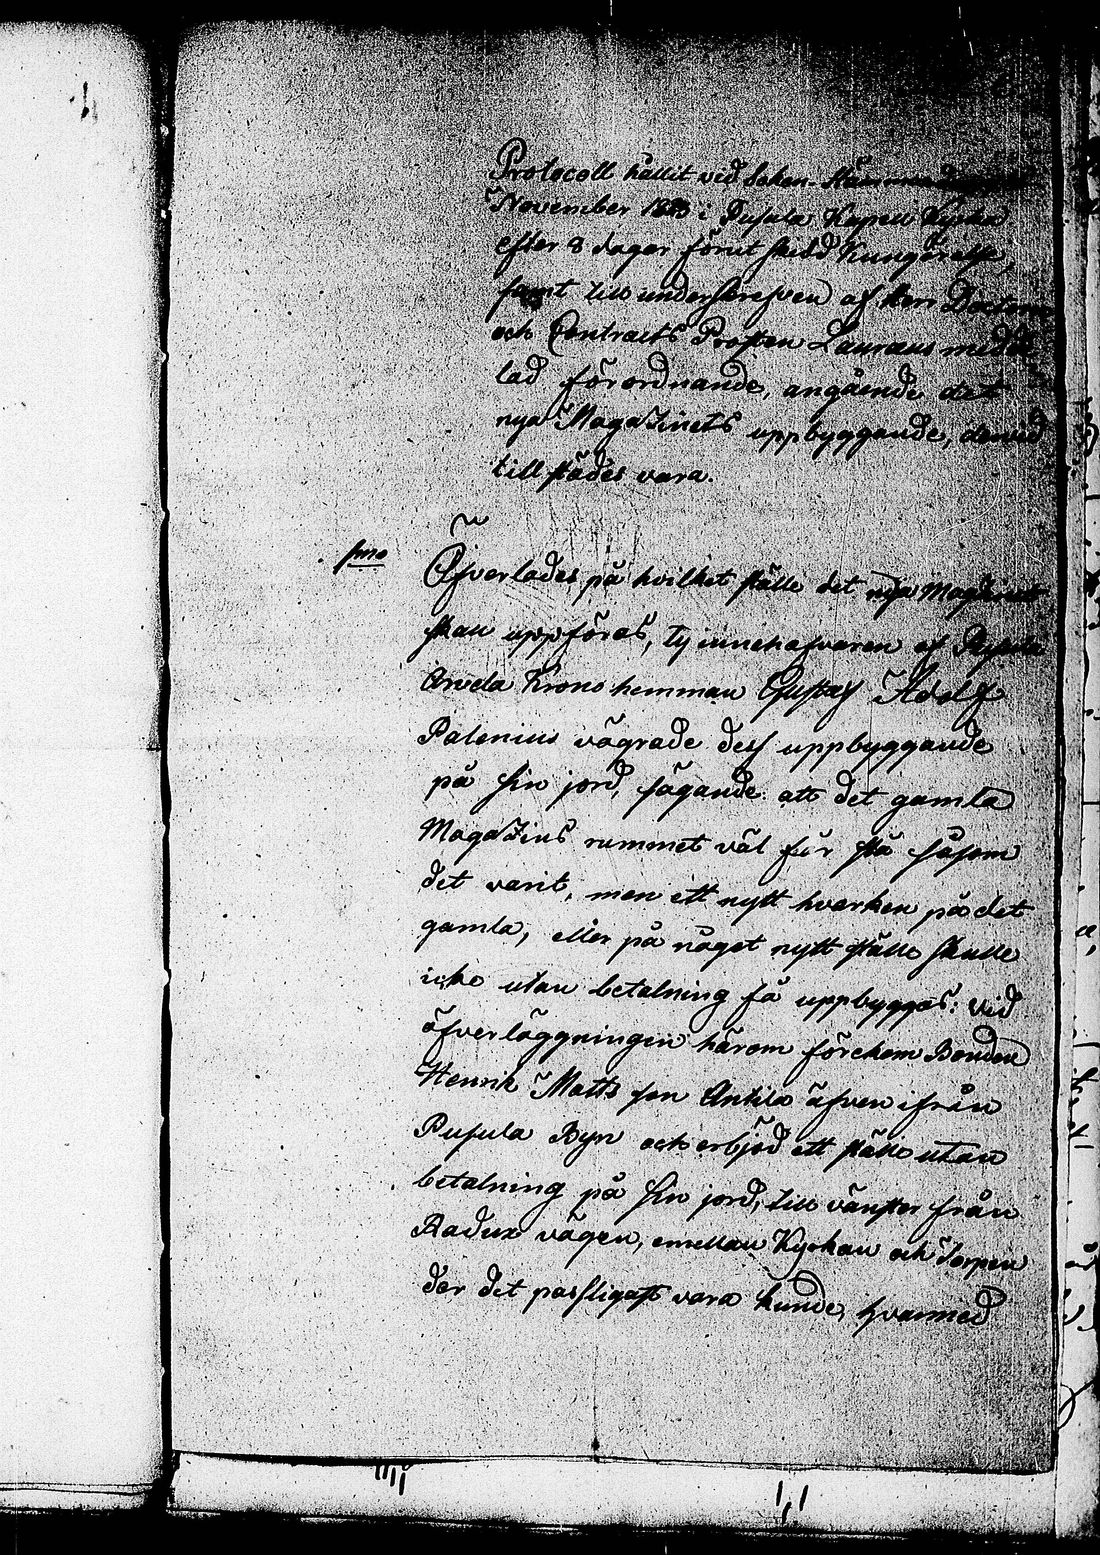 Protocoll hållit vid Soken-
November i Pusula Kapell Kyrka
efter 8 dagar förut skedd Kungörelse,
samt till underskrefven af Herr Doctorn
och Contracts Prosten Lauraeus medde
lad förordnande, angående det
nya Magazinets uppbyggande, dervid
tillstädes vara.
§mo
Öfverlades, på hvilket ställe det nya Magazinet
skall uppföras, ty innehafvaren af Pusula
Krono hemman Gustaf Adolf
Palenius vägrade dess uppbyggande
på sin jord, sägande: att det gamla
Magazins rummet väl får stå såsom
det varit, men ett nytt hvarken på det
gamla, eller på något nytt ställe skulle
icke utan betalning få uppbyggas: vid
öfverläggningen härom förekom Bonden
Henrik Matts son Antila äfven ifrån
Pusula Byn och erbjöd ett ställe utan
betalning på sin jord, till vänster från
vägen, emellan Kyrkan och Torpen
der det passligast vara kunde, hvarmed